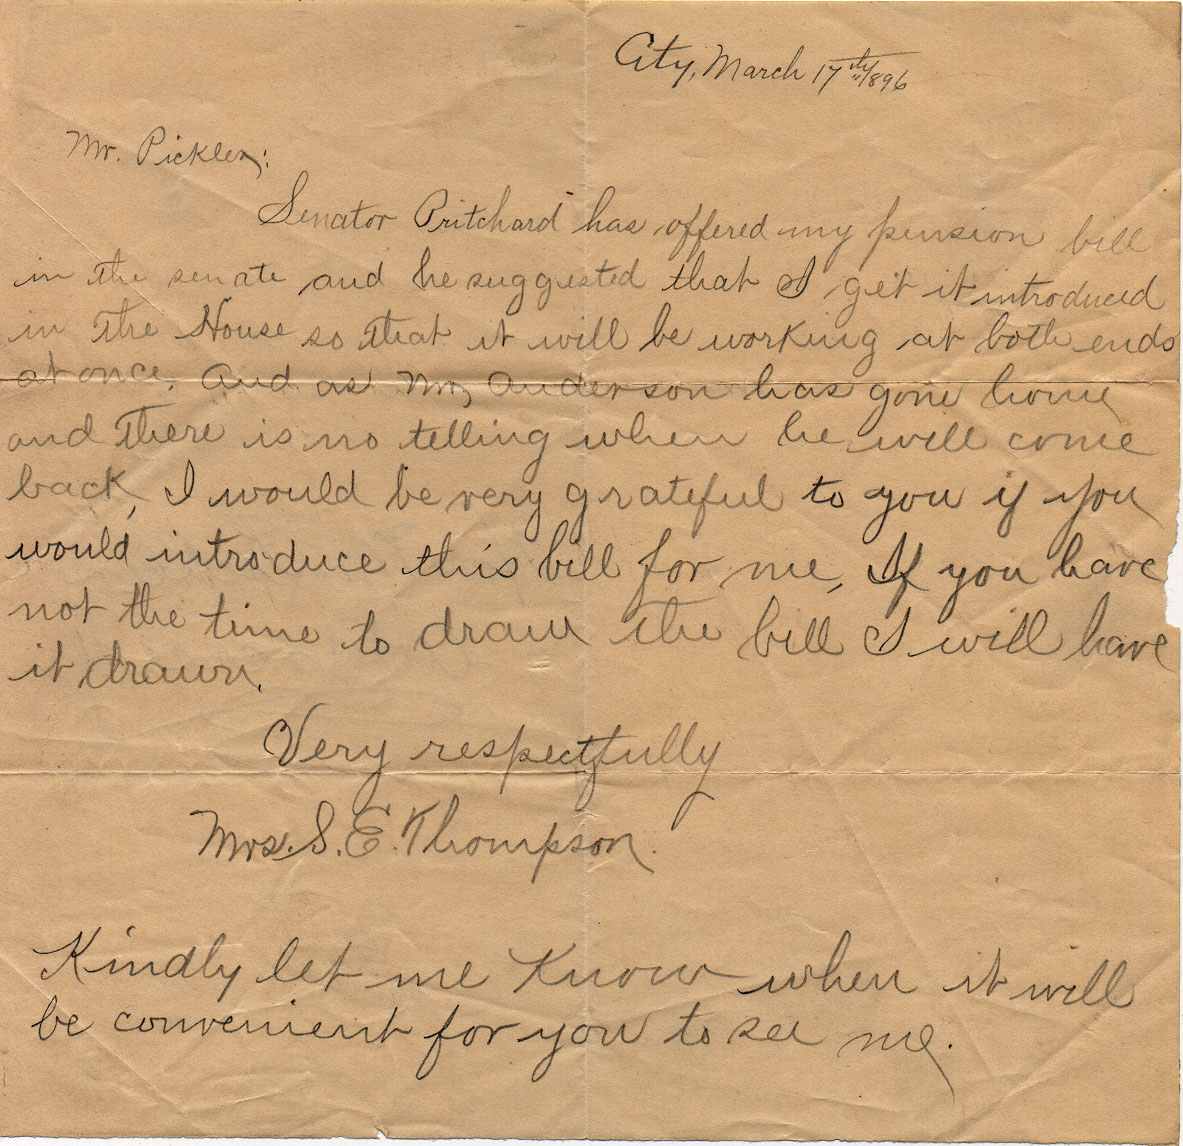 City, March 17th 1896
Mr. Pickler:
Senator Pritchard has offered my pension bill
in the senate and he suggested that I get it introduced
in the House so that it will be working at both ends
at once. And as Mr, Anderson has gone home
and there is no telling when he will come
back, I would be very grateful to you if you
would introduce this bill for me, If you have
not the time to draw the bill I will have
it drawn.
Very respectfully
Mrs. S. E. Thompson.
Kindly let me know when it will
be convenient for you to see me.